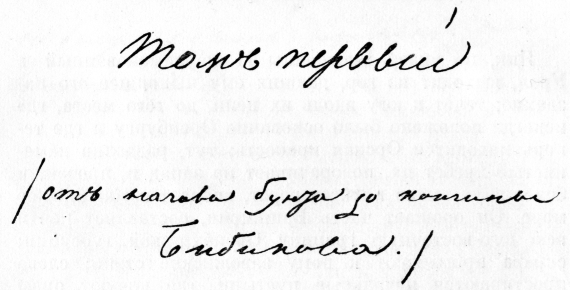 Томъ первый
/отъ начала бунта до кончины
Бибикова./